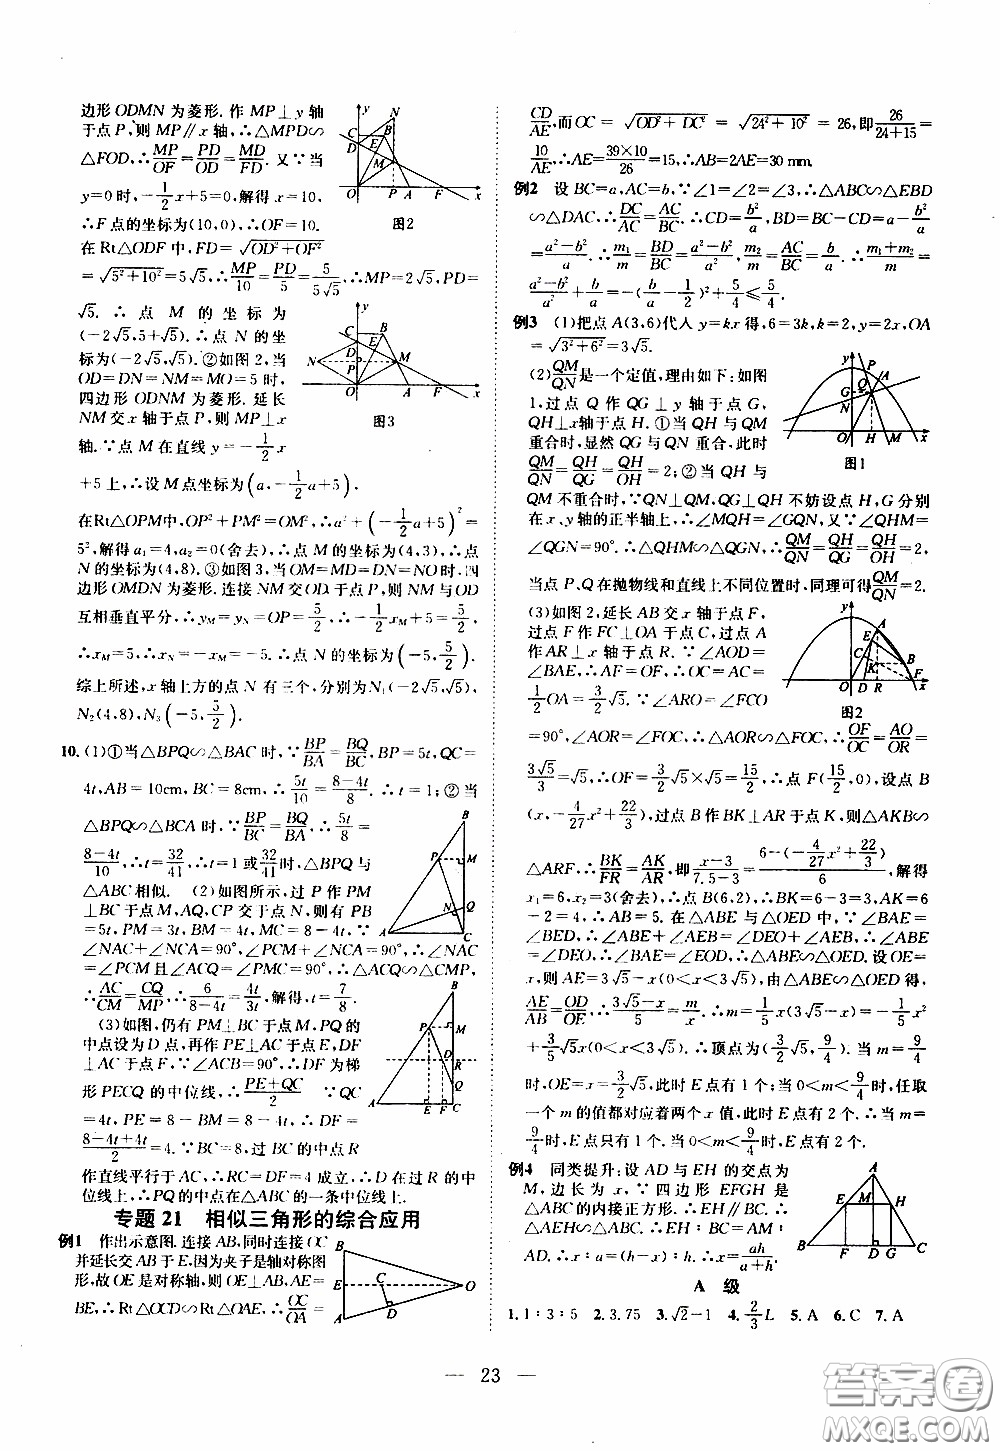 边形ODMN为菱形.作MP⊥y轴
于点P,则MP∥x轴,∴△MPD∽
△FOD,∴MP/OF=PD/OD=MD/FD.又∵当
y=0时,-1/2x+5=0,解得x=10.
∴F点的坐标为(10,0),∴OF=10.
在Rt△ODF中,FD=√OD²+OF²
=√5²+10²=5√5,∴MP/10=PD/5=5/5√5,∴MP=2√5,PD=
√5.∴点M的坐标为
(-2√5,5+√5).∴点N的坐
标为(-2√5,√5).②如图2,当
OD=DN=NM=MO=5时,
四边形ODNM为菱形.延长
NM交x轴于点P,则MP⊥x
轴.∵点M在直线y=-1/2x
+5上,∴设M点坐标为(a,-1/2a+5).
在Rt△OPM中,OP²+PM²=OM²,∴a²+(-1/2a+5)²=
5²,解得a₁=4,a₂=0(舍去),∴点M的坐标为(4,3),∴点
N的坐标为(4,8).③如图3,当OM=MD=DN=NO时,四
边形OMDN为菱形.连接NM交OD于点P,则NM与OD
互相垂直平分,∴yM=yN=OP=5/2,∴-1/2xM+5=5/2,
∴xM=5,∴xN=-xM=-5.∴点N的坐标为(-5,5/2).
综上所述,x轴上方的点N有三个,分别为N₁(-2√5,√5),
N₂(4,8),N₃(-5,5/2).
图2
图3
10.(1)①当△BPQ∽△BAC时,∵BP/BA=BQ/BC,BP=5t,QC=
4t,AB=10cm,BC=8cm,∴5t/10=8-4t/8,∴t=1;②当
△BPQ∽△BCA时,∵BP/BC=BQ/BA,∴5t/8=
8-4t/10,∴t=32/41,∴t=1或32/41时,△BPQ与
△ABC相似.(2)如图所示,过P作PM
⊥BC于点M,AQ,CP交于点N,则有PB
=5t,PM=3t,BM=4t,MC=8-4t,∵
∠NAC+∠NCA=90°,∠PCM+∠NCA=90°,∴∠NAC
=∠PCM且∠ACQ=∠PMC=90°,∴△ACQ∽△CMP,
∴AC/CM=CQ/MP,∴6/8-4t=4t/3t,解得:t=7/8
(3)如图,仍有PM⊥BC于点M,PQ的
中点设为D点,再作PE⊥AC于点E,DF
⊥AC于点F,∵∠ACB=90°,∴DF为梯
形PECQ的中位线,∴PE+QC/2 ∵QC
=4t,PE=8-BM=8-4t,∴DF=
8-4t+4t/2=4.∵BC=8,过BC的中点R
作直线平行于AC,∴RC=DF=4成立,∴D在过R的中
位线上,∴PQ的中点在△ABC的一条中位线上.
专题21 相似三角形的综合应用
例1 作出示意图.连接AB,同时连接OC
并延长交AB于E,因为夹子是轴对称图
形,故OE是对称轴,∴OE⊥AB,AE=
BE,∴Rt△OCD∽Rt△OAE,∴OC/OA=
CD/AE,而OC=√OD²+DC²=√24²+10²=26,即26/24+15=
10/AE,∴AE=39×10/26=15,∴AB=2AE=30 mm.
例2 设BC=a,AC=b,∵∠1=∠2=∠3,∴△ABC∽△EBD
∽△DAC,∴DC/AC=AC/BC,∴CD=b²/a,BD=BC-CD=a-b²/a
=a²-b²/a,∴m₁/m=BD/BC=a²-b²/a²,m₂/m=AC/BC=b/a,∴m₁+m₂/m=
a²-b²/a²+b/a=-(b/a-1/2)²+5/4≤5/4.
例3 (1)把点A(3,6)代入y=kx得,6=3k,k=2,y=2x,OA
=√3²+6²=3√5.
(2)QM/QN是一个定值,理由如下:如图
1,过点Q作QG⊥y轴于点G,
QH⊥x轴于点H.①当QH与QM
重合时,显然QG与QN重合,此时
QM/QN=QH/QG=QH/OH=2;②当QH与
QM不重合时,∵QN⊥QM,QG⊥QH不妨设点H,G分别
在x、y轴的正半轴上,∴∠MQH=∠GQN,又∵∠QHM
=∠QGN=90°.∴△QHM∽△QGN,∴QM/QN=QH/QG=QH/OH=2,
当点P、Q在抛物线和直线上不同位置时,同理可得QM/QN=2.
图1
(3)如图2,延长AB交x轴于点F,
过点F作FC⊥OA于点C,过点A
作AR⊥x轴于点R.∵∠AOD=
∠BAE,∴AF=OF,∴OC=AC=
1/2OA=3/2√5.∵∠ARO=∠FCO
=90°,∠AOR=∠FOC,∴△AOR∽△FOC,∴OF/OC=AO/OR=
3√5/3=√5,∴OF=3/2√5×√5=15/2,∴点F(15/2,0),设点B
(x,-4/27x²+22/3),过点B作BK⊥AR于点K,则△AKB∽
△ARF,∴BK/FR=AK/AR,即x-3/7.5-3=6-(-4/27x²+22/3)/6,解得
x₁=6,x₂=3(舍去),∴点B(6,2),∴BK=6-3=3,AK=6
-2=4,∴AB=5.在△ABE与△OED中,∵∠BAE=
∠BED,∴∠ABE+∠AEB=∠DEO+∠AEB,∴∠ABE
=∠DEO,∵∠BAE=∠EOD,∴△ABE∽△OED.设OE=
x,则AE=3√5-x(0<x<3√5),由△ABE∽△OED得,
AE/AB=OD/OE,∴3√5-x/5=m/x,∴m=1/5x(3√5-x)=-1/5x²
+3/5√5x(0<x<3√5),∴顶点为(3/2√5,9/4).当m=9/4
时,OE=x=3/2√5,此时E点有1个.当0<m<9/4时,任取
一个m的值都对应着两个x值,此时E点有2个.∴当m=
9/4时,E点只有1个.当0<m<9/4时,E点有2个.
图2
例4 同类提升:设AD与EH的交点为
M,即MD=x,∵四边形EFGH是
△ABC的内接正方形,∴EH∥BC,
△AEH∽△ABC,∴EH:BC=AM:
AD.∴x:a=(h-x):h,∴x=ah/a+h.
A 级
1.1:3:5 2.3.75 3.√2-1 4.2/3L 5.A 6.C 7.A
— 23 —
答案圈
MXQE.COM